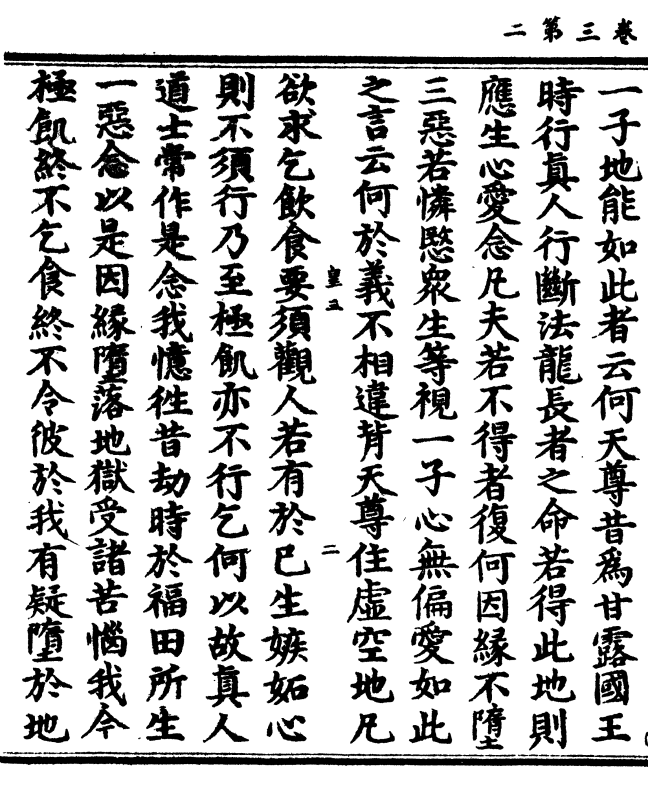 卷三第二
一子地能如此者云何天尊昔爲甘露國王
時行真人行斷法龍長者之命若得此地則
應生心愛念凡夫若不得者復何因緣不墮
三惡若憐愍衆生等視一子心無偏愛如此
之言云何於義不相違背天尊住虛空地凡
皇五
二
欲求乞飲食要須觀人若有於已生嫉妬心
則不須行乃至極飢亦不行乞何以故真人
道士常作是念我憶徃昔劫時於福田所生
一惡念以是因緣墮落地獄受諸苦惱我今
極飢終不乞食終不令彼於我有疑墮於地